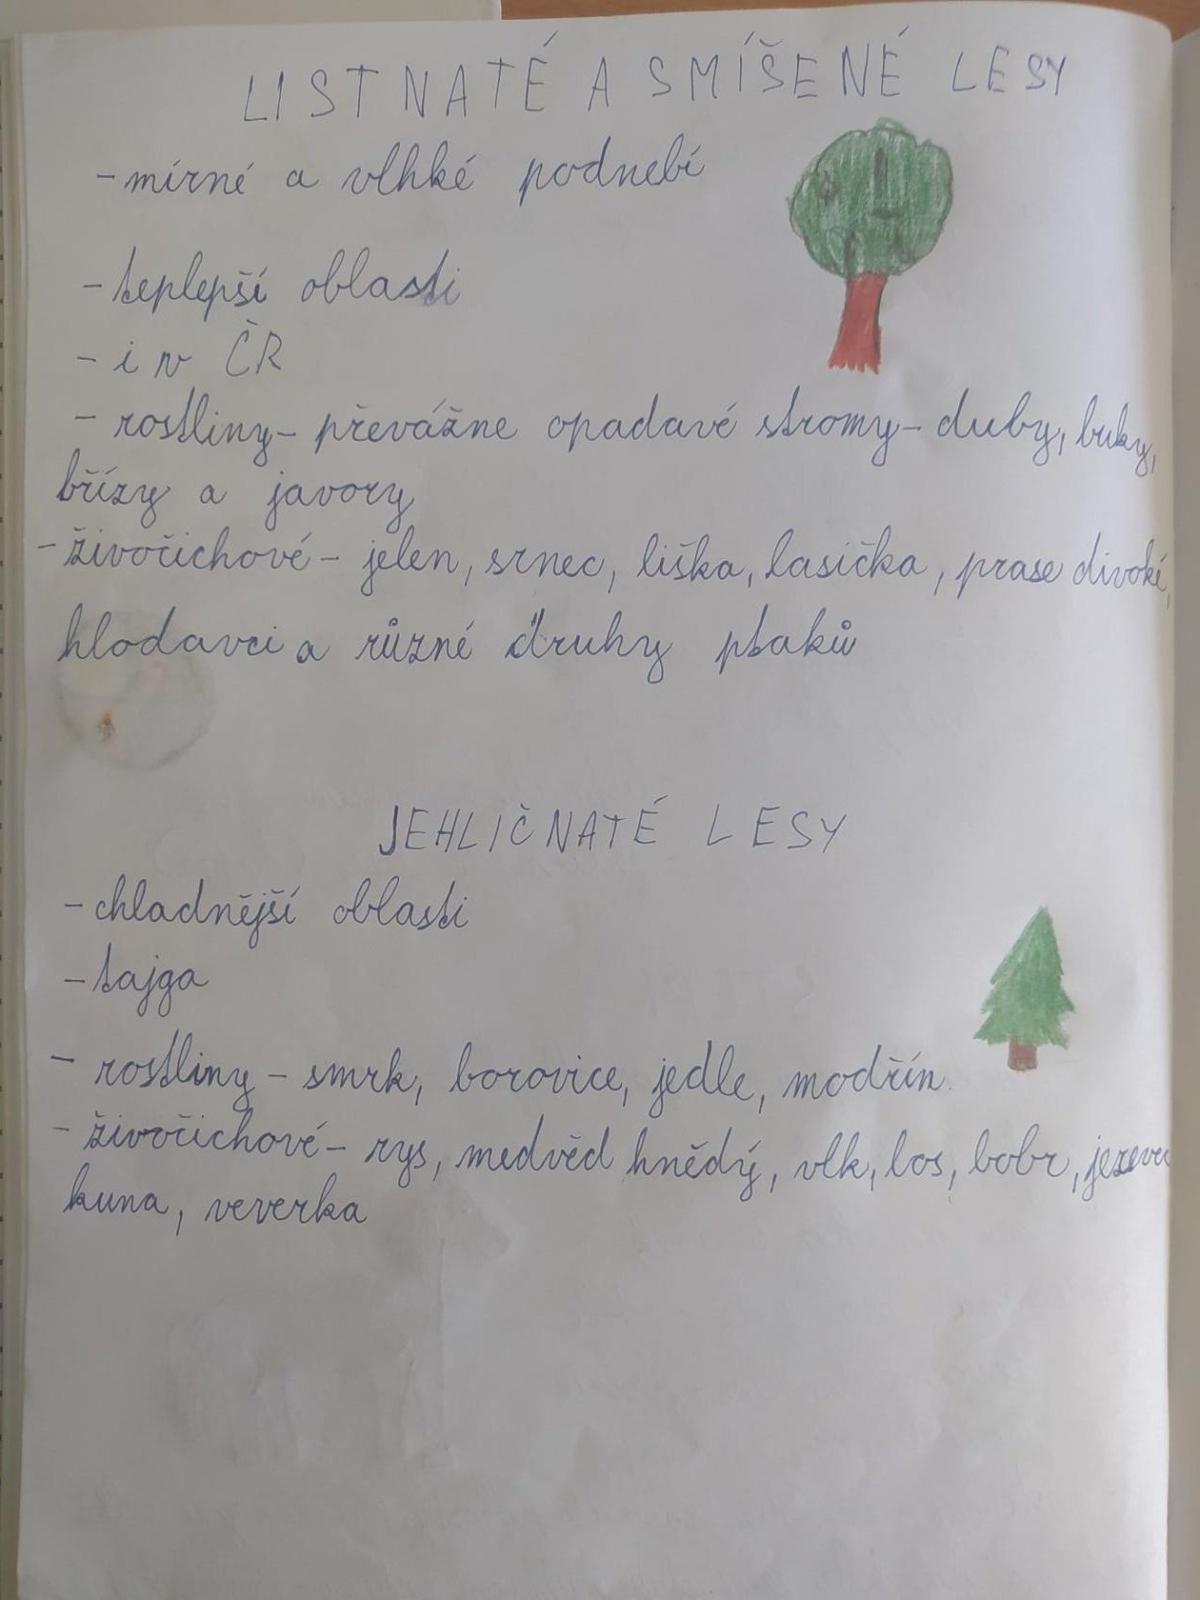 LISTNATÉ A SMÍŠENÉ LESY
- mírné a vlhké podnebí
- teplejší oblasti
- i v ČR
- rostliny - převážne opadavé stromy - duby, buky,
břízy a javory
- živočichové - jelen, srnec, liška, lasička, prase divoké,
hlodavci a různé druhy ptaků
JEHLIČNATÉ LESY
- chladnější oblasti
- tajga
- rostliny - smrk, borovice, jedle, modřín
- živočichové - rys, medvěd hnědý, vlk, los, bobr,
kuna, veverka